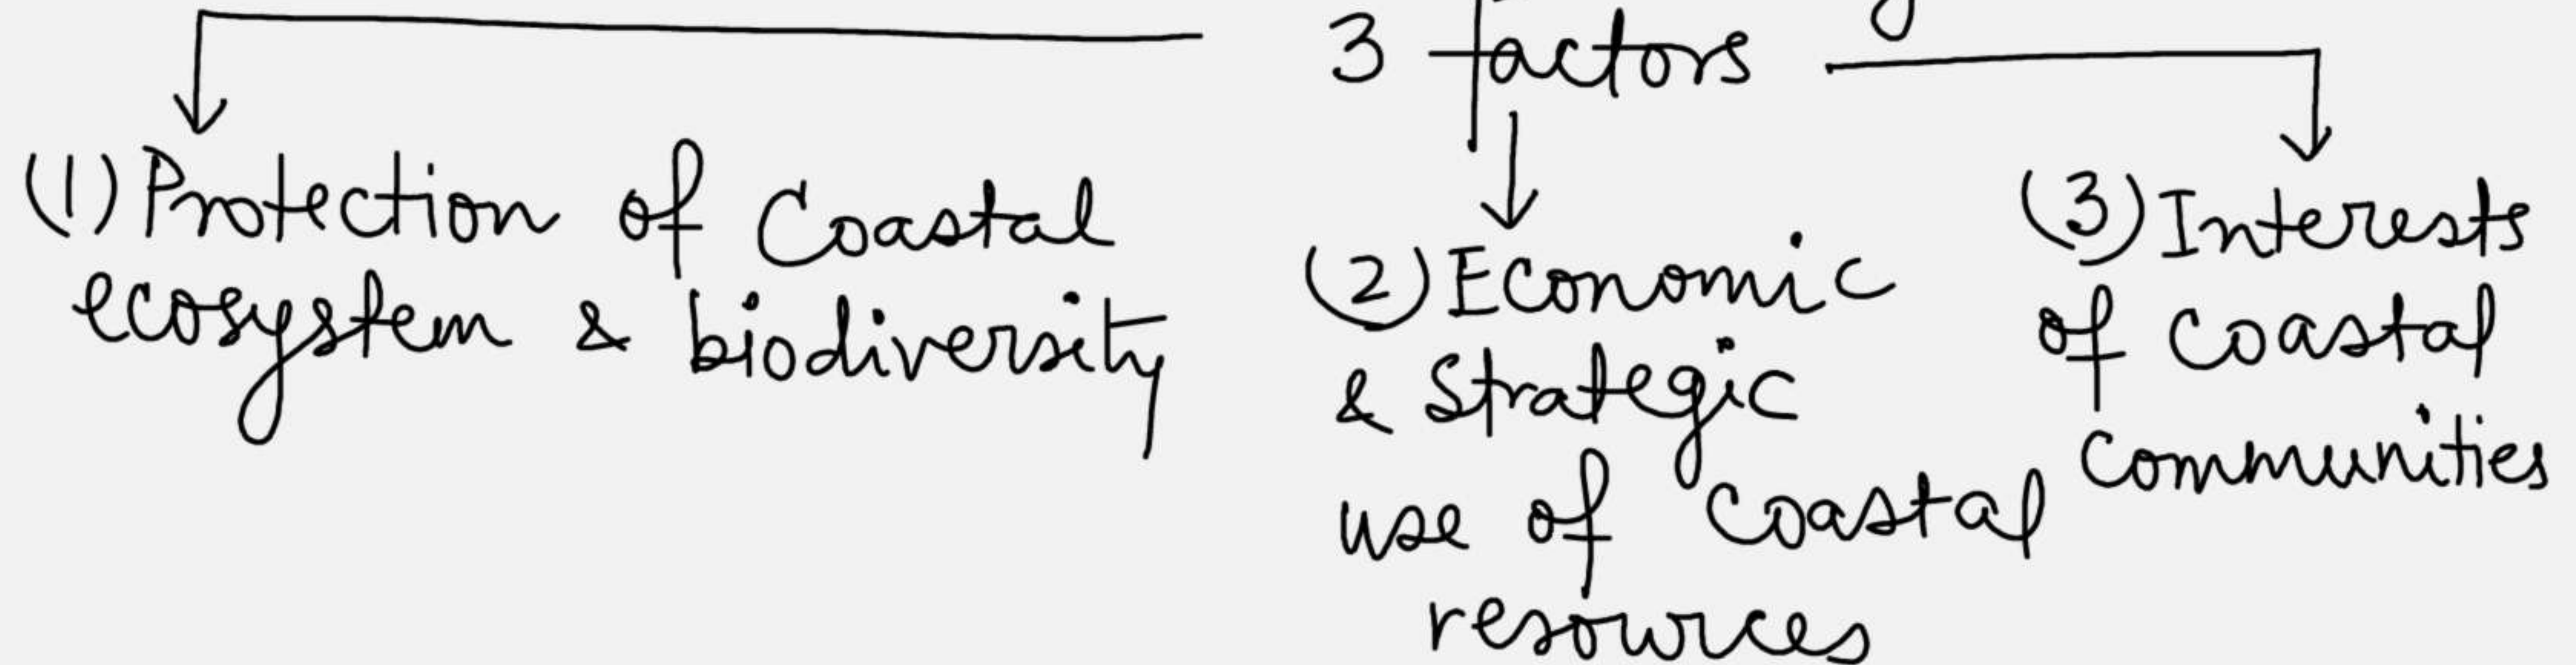 3 factors
(1) Protection of Coastal
ecosystem & biodiversity
(2) Economic
& Strategic
use of Coastal
resources
(3) Interests
of Coastal
Communities